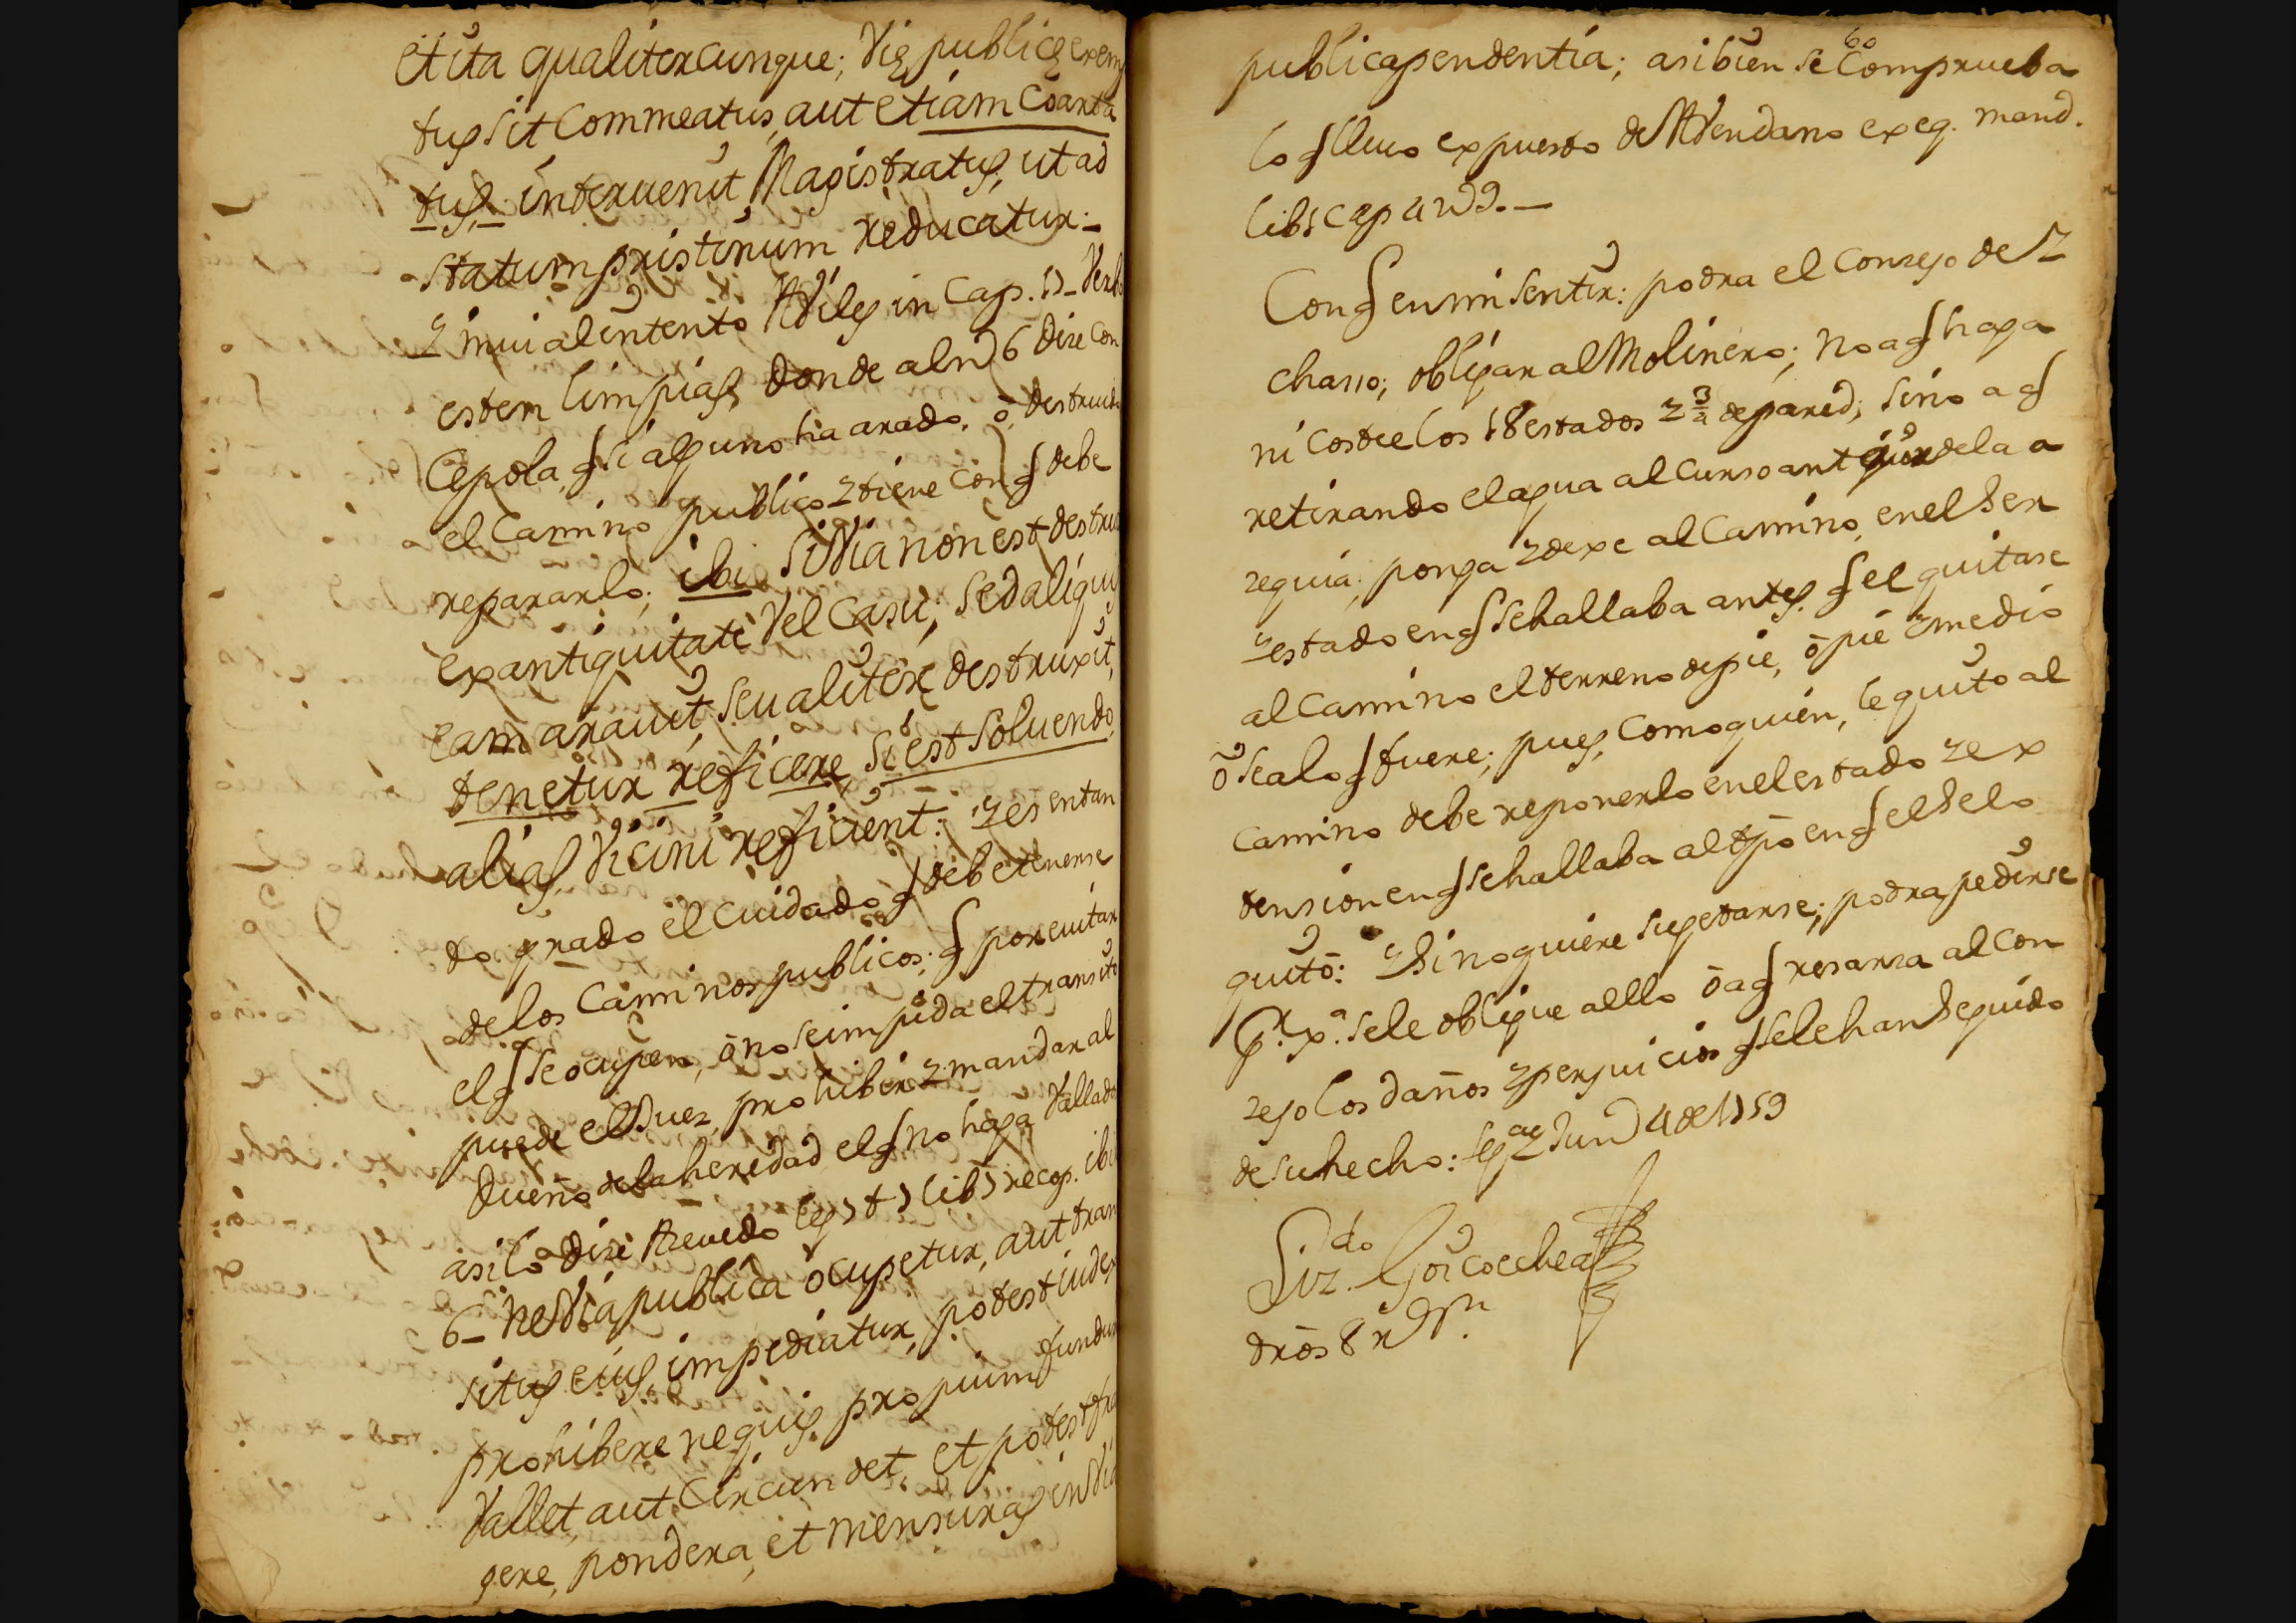 et ita qualitercunque; Vię publicę exemp
tus sit Commeatus, aut etiam Coarta
tus, interuenit Magistratus, ut ad
statum pristinum reducatur:_
y mui al intento Aviles in Cap. 17_ Verb
esten limpias, donde al n 6 dize con
Cepola, q si alguno ha arado, ò, destruido
el Camino publico y tiene con q debe
repararlo; ibi Si Via non est destru
ex antiquitate Vel Casu; sed aliqui
eam arauit, seu aliter destruxit,
tenetur reficere, si est soluendo,
alias, Vicini reficient: y es en tan
to grado el cuidado q debe tenerse
de los Caminos publicos; q por euitar
el q se ocupen, ò no se impida el transito
puede el Juez, prohibir y mandar al
Dueño de la heredad el q no haga Vallado
asi lo dize Azeuedo ley 7 t 7 lib 7 recop. ibi
6_ ne Via publica ocupetur, aut tran
situs eius, impediatur, potest iudex
prohibere nequis propium fundum
Vallet, aut Circundet, et potest fra
gere, pondera, et mensuras in Via
60
publica pendentia; asi bien se Comprueba
lo q lleuo expuesto de Avendano exeq. mand.
lib 1 cap 4 n 9._
Con q en mi sentir: podra el Conzejo de Z
charro; obligar al Molinero; no a q haga
ni costee los 18 estados y 3/4 de pared; sino a q
retirando el agua al curso antiguo de la a
zequia, ponga y dexe al Camino, en el Ser
y estado en q se hallaba antes, q el quitase
al Camino el terreno de pie, ò pie y medio
ò sea lo q fuere; pues, Como quien, le quito al
Camino debe reponerlo en el estado y ex
tension en q se hallaba al tpo en q el Se lo
quitò: y Si no quiere sugetarse; podra pedirse
se le obligue a ello ò a q resarza al Con
zejo los daños y perjuicios q se le han Seguido
de su hecho: Jun 4 de 1759
Liz.do Goicoechea
dròs 8 rs